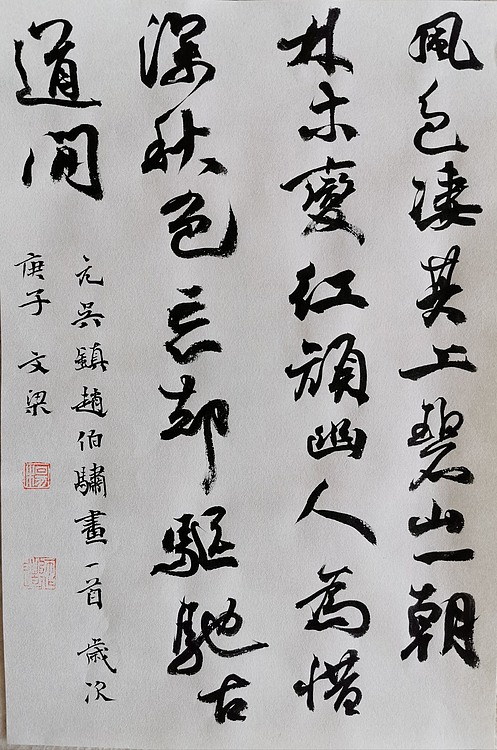 風色凄其上碧山一朝
林木變紅顏幽人為惜
深秋色忘却驅馳古
道間
元吳鎮趙伯驌畫一首 歲次
庚子 文梁